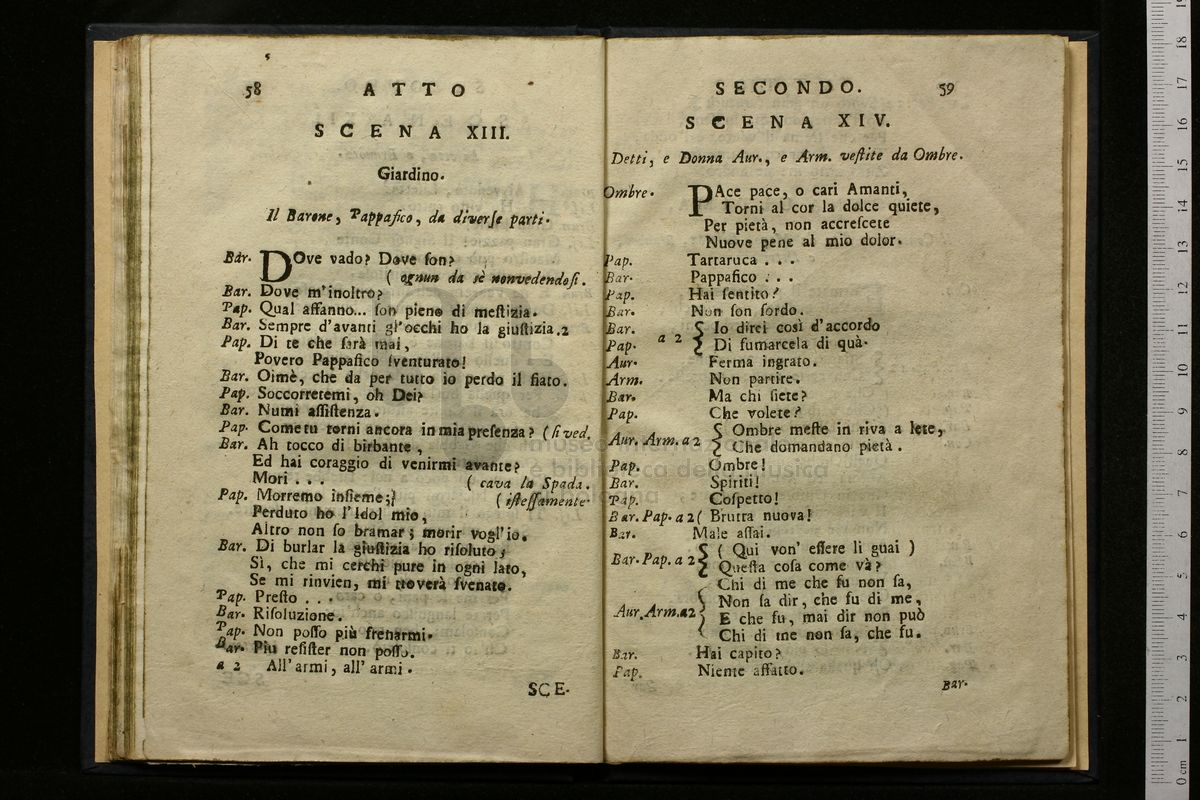 58 ATTO
SCENA XIII.
Giardino.
Il Barone, Pappafico, da diverſe parti.
Bar. DOve vado? Dove ſon?
( ognun da sè nonvedendoſi.
Bar. Dove m'inoltro?
Pap. Qual affanno... ſon pieno di meſtizia.
Bar. Sempre d'avanti gl'occhi ho la giuſtizia.2
Pap. Di te che ſarà mai,
Povero Pappafico ſventurato!
Bar. Oimè, che da per tutto io perdo il fiato.
Pap. Soccorretemi, oh Dei?
Bar. Numi aſſiſtenza.
Pap. Come tu torni ancora in mia preſenza? (ſi ved.
Bar. Ah tocco di birbante,
Ed hai coraggio di venirmi avante?
Mori . . . ( cava la Spada.
Pap. Morremo inſieme;} ( iſteſſamente.
Perduto ho l'Idol mio,
Altro non ſo bramar; morir vogl'io.
Bar. Di burlar la giuſtizia ho riſoluto;
Sì, che mi cerchi pure in ogni lato,
Se mi rinvien, mi troverà ſvenato.
Pap. Preſto . . .
Bar. Riſoluzione.
Pap. Non poſſo più frenarmi.
Bar. Piu reſiſter non poſſo.
a 2 All'armi, all'armi.
SCE-
SECONDO. 59
SCENA XIV.
Detti, e Donna Aur., e Arm. veſtite da Ombre.
Ombre. PAce pace, o cari Amanti,
Torni al cor la dolce quiete,
Per pietà, non accreſcete
Nuove pene al mio dolor.
Pap. Tartaruca . . .
Bar. Pappafico . . .
Pap. Hai ſentito?
Bar. Non ſon ſordo.
Bar. Io direi così d'accordo
Pap. a 2 { Di fumarcela di quà.
Aur. Ferma ingrato.
Arm. Non partire.
Bar. Ma chi ſiete?
Pap. Che volete?
Aur. Arm. a 2 { Ombre meſte in riva a lete,
Che domandano pietà.
Pap. Ombre!
Bar. Spiriti!
Pap. Coſpetto!
Bar. Pap. a 2 ( Brutta nuova!
Bar. Male aſſai.
Bar. Pap. a 2 { ( Qui von' eſſere li guai )
Queſta coſa come và?
Chi di me che fu non ſa,
Aur. Arm. a2 { Non ſa dir, che fu di me,
E che fu, mai dir non può
Chi di me non ſa, che fu.
Bar. Hai capito?
Pap. Niente affatto.
Bar.
museo internazionale
e biblioteca della musica
0 cm 1 2 3 4 5 6 7 8 9 10 11 12 13 14 15 16 17 18 19